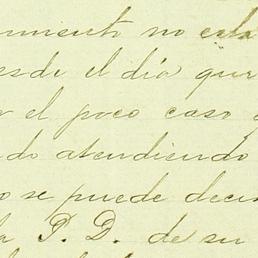 miento no esta
esde el día que
o el poco caso
do atendiendo
o se puede deci
la P. D. de su